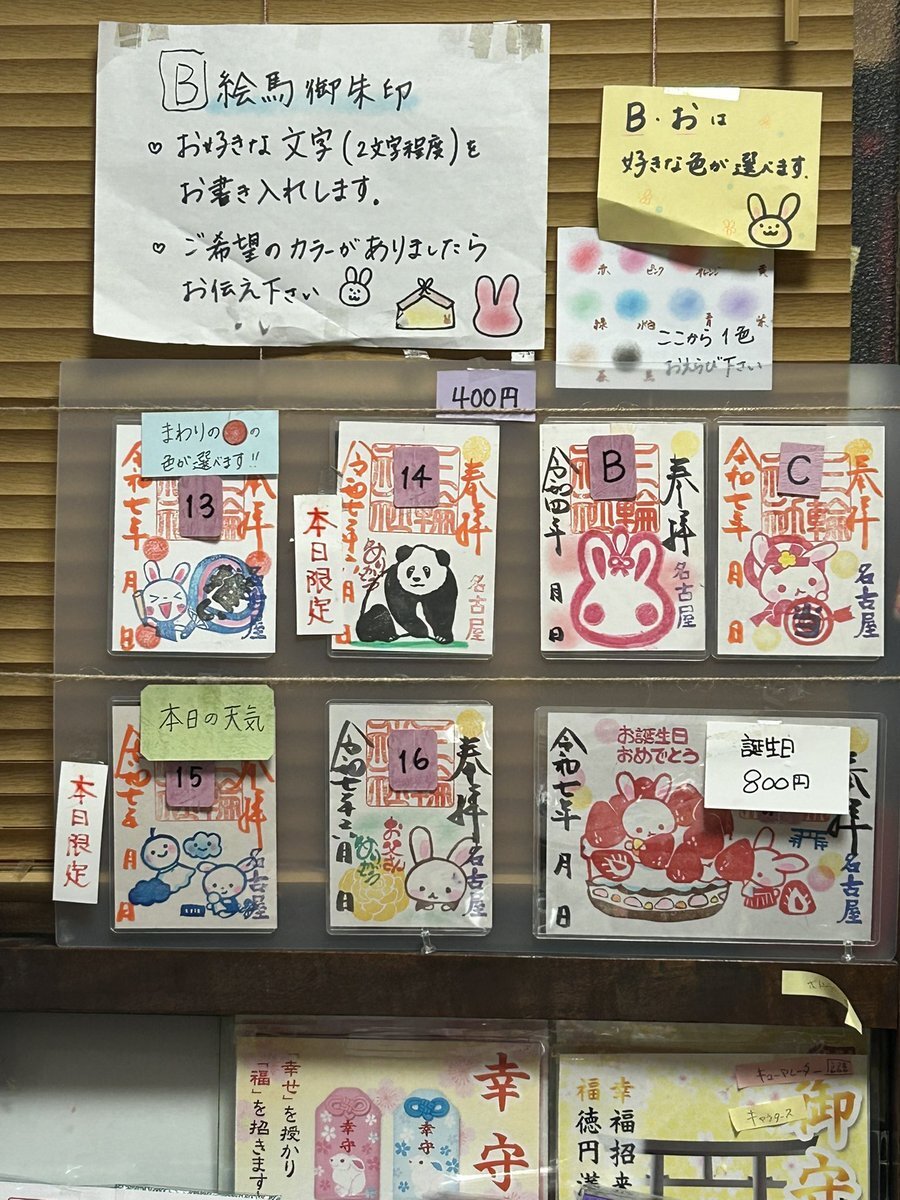 B 絵馬御朱印
♡ お好きな文字(2文字程度)を
お書き入れします。
♡ ご希望のカラーがありましたら
お伝え下さい
B・おは
好きな色が選べます。
赤 ピンク オレンジ 黄
緑 水色 青 紫
茶 黒
ここから1色
おえらび下さい
400円
まわりの●の
色が選べます!!
13
奉拝
令和七年
月
日
名古屋
本日限定
14
奉拝
令和七年
月
日
名古屋
B
奉拝
令和四年
月
日
名古屋
C
奉拝
令和七年
月
日
名古屋
本日限定
本日の天気
15
奉拝
令和七年
月
日
名古屋
16
奉拝
令和七年
月
日
お父さん
名古屋
誕生日
800円
お誕生日
おめでとう
奉拝
令和七年
月
日
名古屋
幸守
「幸せ」を授かり
「福」を招きます
幸守
幸守
御守
幸福招来
福徳円満